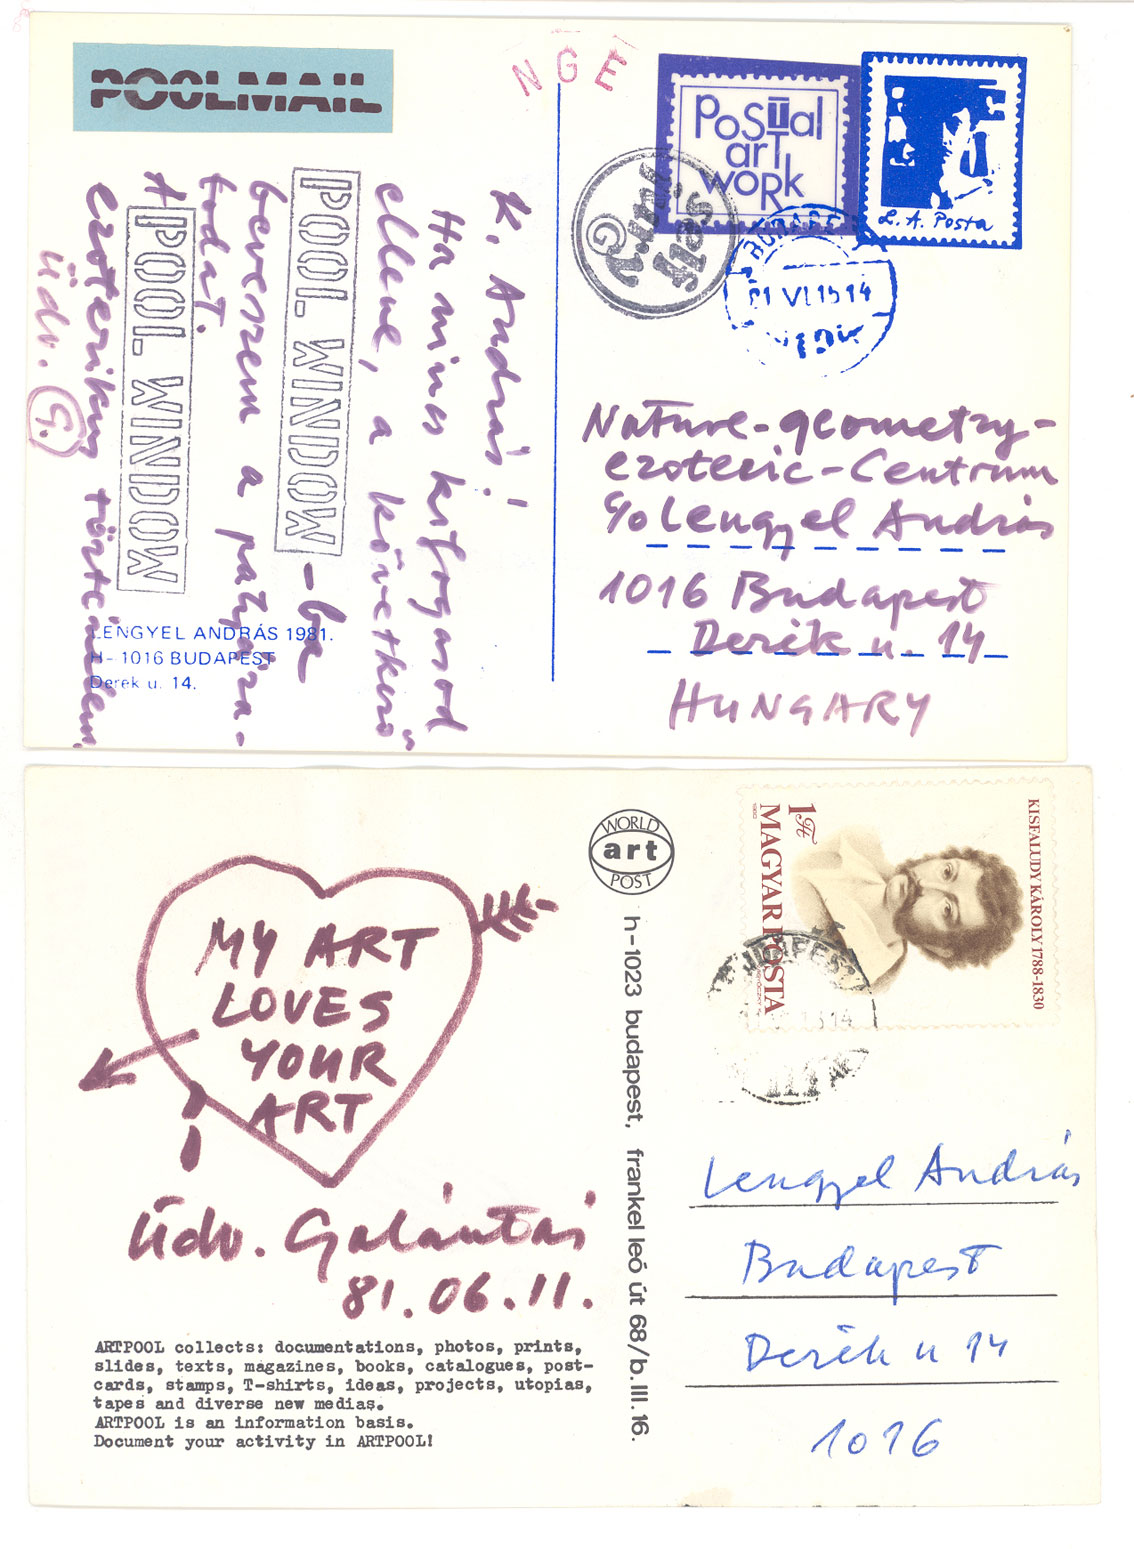 POOLMAIL
NGE
Postal
art
work
L. A. Posta
BUDAPE
81 VI. 15 14
K. András!
Ha nincs kifogásod
ellene, a következő
POOL WINDOW -ba
beveszem a pályáza-
todat.
A POOL WINDOW
ezoterikus
Üdv. G.
LENGYEL ANDRÁS 1981.
H-1016 BUDAPEST
Derék u. 14.
Nature-geometry-
ezoteric-Centrum
c/o Lengyel András
1016 Budapest
Derék u. 14
HUNGARY
WORLD
art
POST
h-1023 budapest, frankel leó út 68/b.III.16.
1 Ft
MAGYAR POSTA
KISFALUDY KÁROLY 1788-1830
BUDAPEST
MY ART
LOVES
YOUR
ART
Üdv. Galántai
81.06.11.
ARTPOOL collects: documentations, photos, prints,
slides, texts, magazines, books, catalogues, post-
cards, stamps, T-shirts, ideas, projects, utopias,
tapes and diverse new medias.
ARTPOOL is an information basis.
Document your activity in ARTPOOL!
Lengyel András
Budapest
Derék u 14
1016